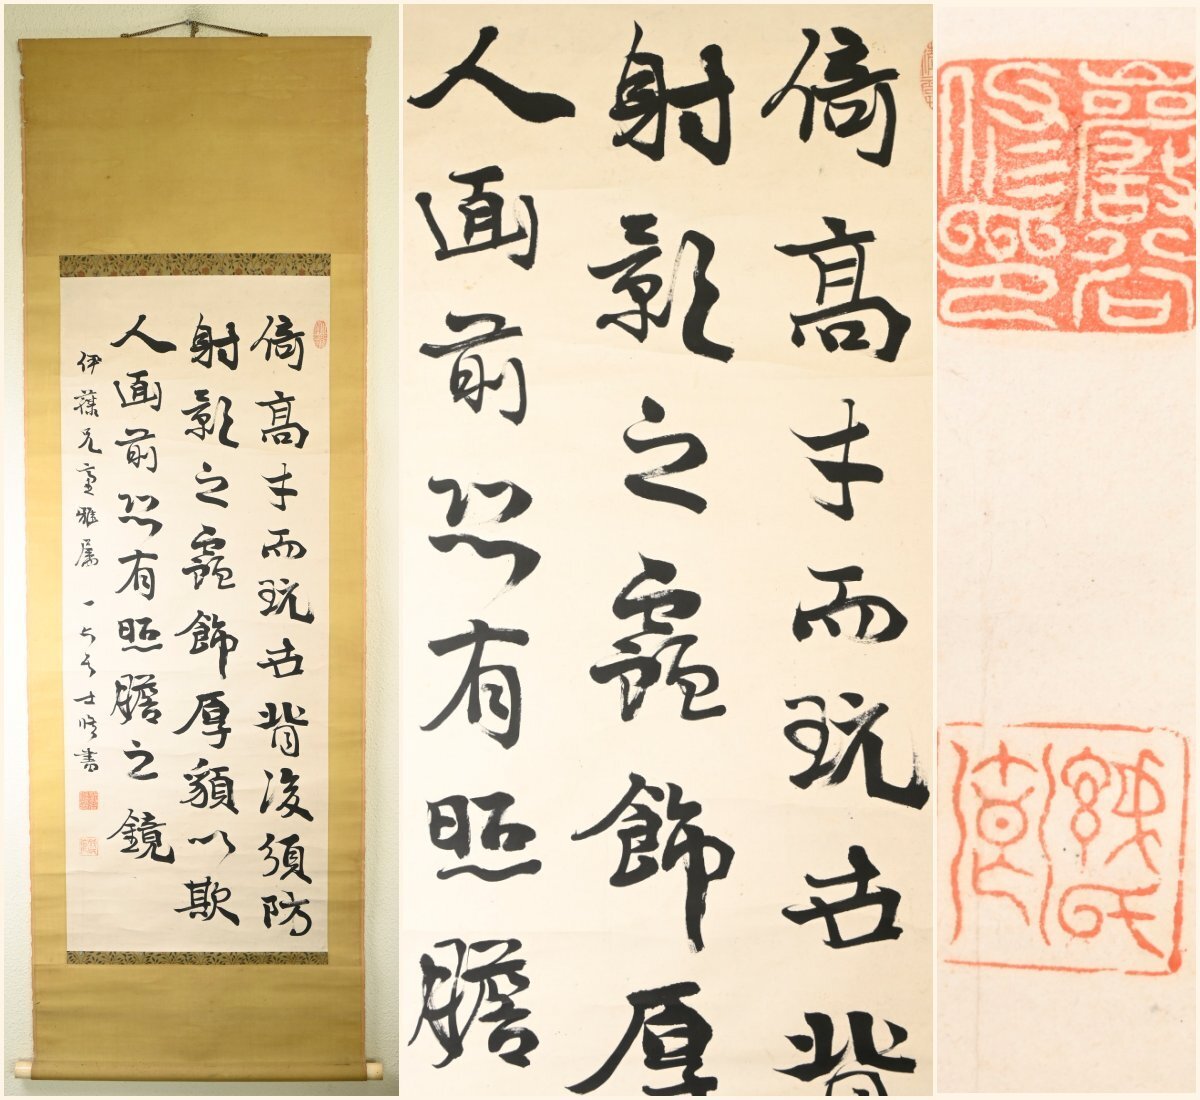 倚高才而玩世背後須防
射影之蟲飾厚貌以欺
人面前恐有照膽之鏡
伊藤兄臺雅属 一六居士修書
倚高才而玩世背
射影之蟲飾厚
人面前恐有照膽
巖谷
修印